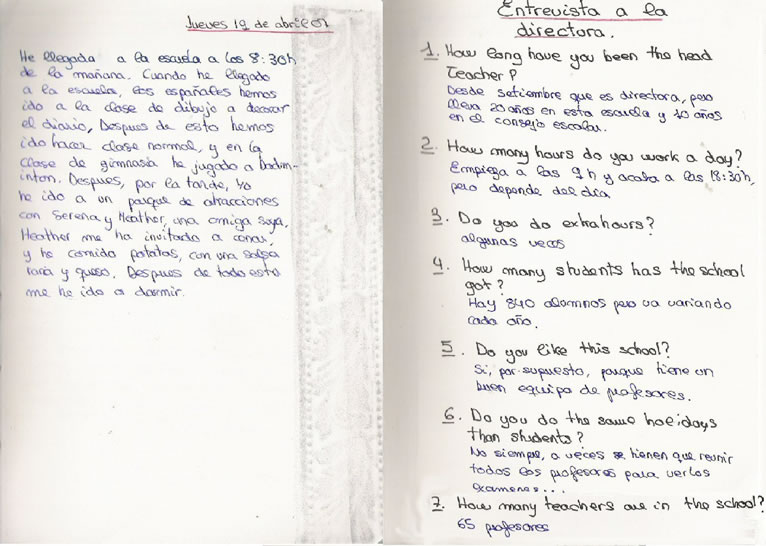 Jueves 19 de abril 07
He llegada a la escuela a las 8:30h
de la mañana. Cuando he llegado
a la escuela, los españoles hemos
ido a la clase de dibujo a decorar
el diario, Despues de esto hemos
ido hacer clase normal, y en la
clase de gimnasia he jugado a badmin-
inton. Despues, por la tarde, yo
he ido a un parque de atracciones
con Serena y Heather, una amiga suya.
Heather me ha invitado a cenar,
y he comido patatas, con una salsa
rara y queso. Despues de todo esto
me he ido a dormir.
Entrevista a la
directora.
1. How long have you been the head
Teacher?
Desde setiembre que es directora, pero
lleva 20 años en esta escuela y 10 años
en el consejo escolar.
2. How many hours do you work a day?
Empieza a las 9h y acaba a las 18:30h,
pero depende del dia
3. Do you do extrahours?
algunas veces
4. How many students has the school
got?
Hay 840 alumnos pero va variando
cada año.
5. Do you like this school?
Si, por supuesto, porque tiene un
buen equipo de profesores.
6. Do you do the same holidays
than students?
No siempre, a veces se tienen que reunir
todos los profesores para ver los
examenes...
7. How many teachers are in the school?
65 profesores